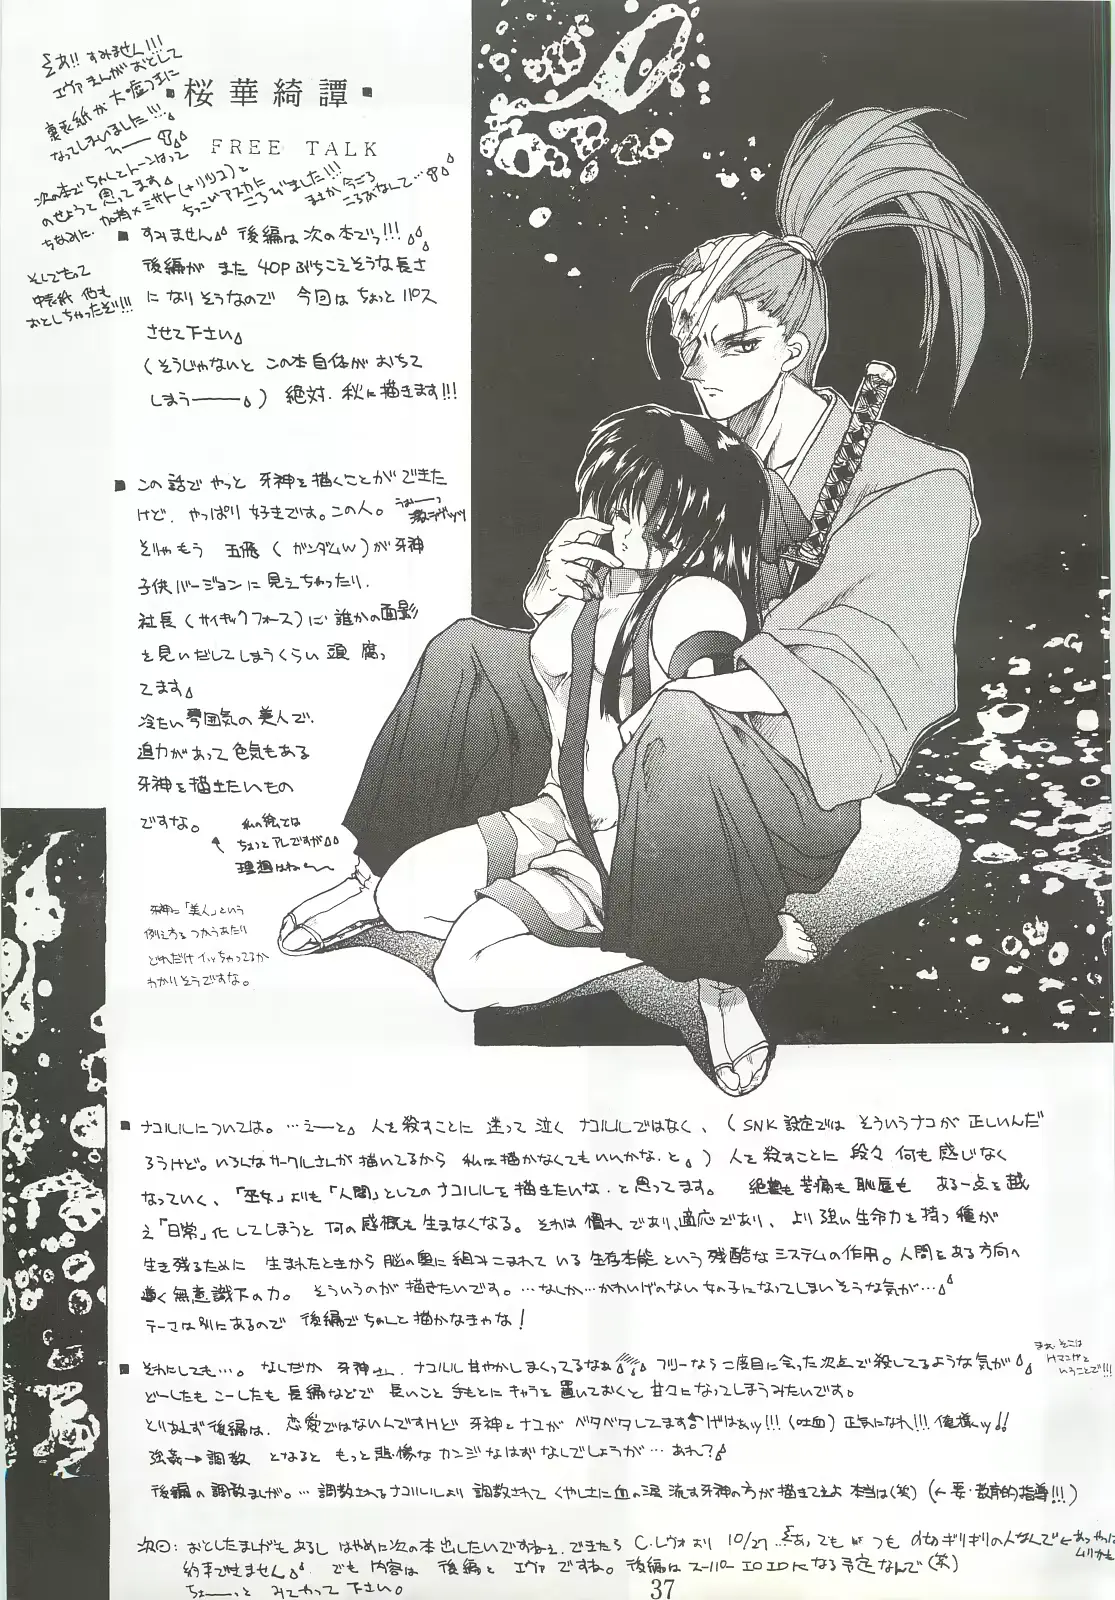 あ!! すみません!!!
エヴァまんがおとして
裏表紙が大・嘘つきに
なってしまいました!!!
次の本でちゃんとトーンはって
のせようと思ってます
ちなみに、加持×ミサト(+リツコ)と
ちっこいアスカに
ころびました!!!
まさか今ごろ
ころぶなんて…
そしてもって
中表紙 他も
おとしちゃったぞ!!!
■桜華綺譚■
FREE TALK
■ すみません 後編は次の本でっ!!!
後編が また 40P ぶちこえそうな長さ
になりそうなので 今回は ちょっと パス
させて下さい
(そうじゃないと この本自体が おちて
しまう——) 絶対、秋に描きます!!!
■ この話で やっと 牙神を描くことができた
けど、やっぱり 好きです。この人。
そりゃもう 五飛(ガンダムW)が牙神
子供バージョンに見えちゃったり、
社長(サイキックフォース)に 誰かの面影
を見いだしてしまうくらい 頭 腐っ
てます
冷たい雰囲気の美人で、
迫力があって色気もある
牙神を描きたいもの
ですな。
私の絵では
ちょっとアレですが
理想はね〜
牙神に「美人」という
例え方を つかうあたり
どれだけ イッちゃってるか
わかりそうですな。
■ ナコルルについては。…えーと 人を殺すことに 迷って 泣く ナコルルではなく、(SNK設定では そういうナコが 正しいんだ
ろうけど。いろんなサークルさんが 描いてるから 私は描かなくてもいいかな、と) 人を殺すことに 段々 何も 感じなく
なっていく、「巫女」よりも「人間」としての ナコルルを描きたいな、と思ってます。 絶望も 苦痛も 恥辱も ある一点を越
え「日常」化してしまうと 何の感慨も生まなくなる。それは 慣れであり、適応であり、より強い生命力を持つ種が
生き残るために 生まれたときから 脳の奥に組みこまれている 生存本能 という 残酷な システムの作用。人間をある方向へ
導く無意識下の力。 そういうのが 描きたいです。…なんか…かわいげのない 女の子になってしまいそうな気が…
テーマは別にあるので 後編でちゃんと描かなきゃな!
■ それにしても…。なんだか 牙神さん、ナコルル 甘やかしまくってるなあ フリーなら二度目に会った次点で殺してるような気が
まぁ そこは
Hマンガと
いうことで!!!
どーしたも こーしたも 長編などで 長いこと 手もとに キャラを 置いておくと 甘々になってしまうみたいです。
とりあえず後編は、恋愛ではないんですけど 牙神とナコが ベタベタしてます げはあッ!!!(吐血) 正気になれ!!! 俺様ッ!!
強姦→調教 となると もっと 悲惨な カンジなはずなんでしょうが… あれ?
後編の調教まんが。… 調教されるナコルルより 調教されて くやしさに血の涙 流す牙神の方が 描きてえよ 本当は(笑) (←要・教育的指導!!!)
次回:おとしたまんがもあるし はやめに次の本出したいですねえ、できたら C.レヴォより 10/27
約束できません でも 内容は 後編と エヴァ ですね。後編は スーパーエロエロになる予定なんで(笑)
ちょーっと みてやって 下さい。
37